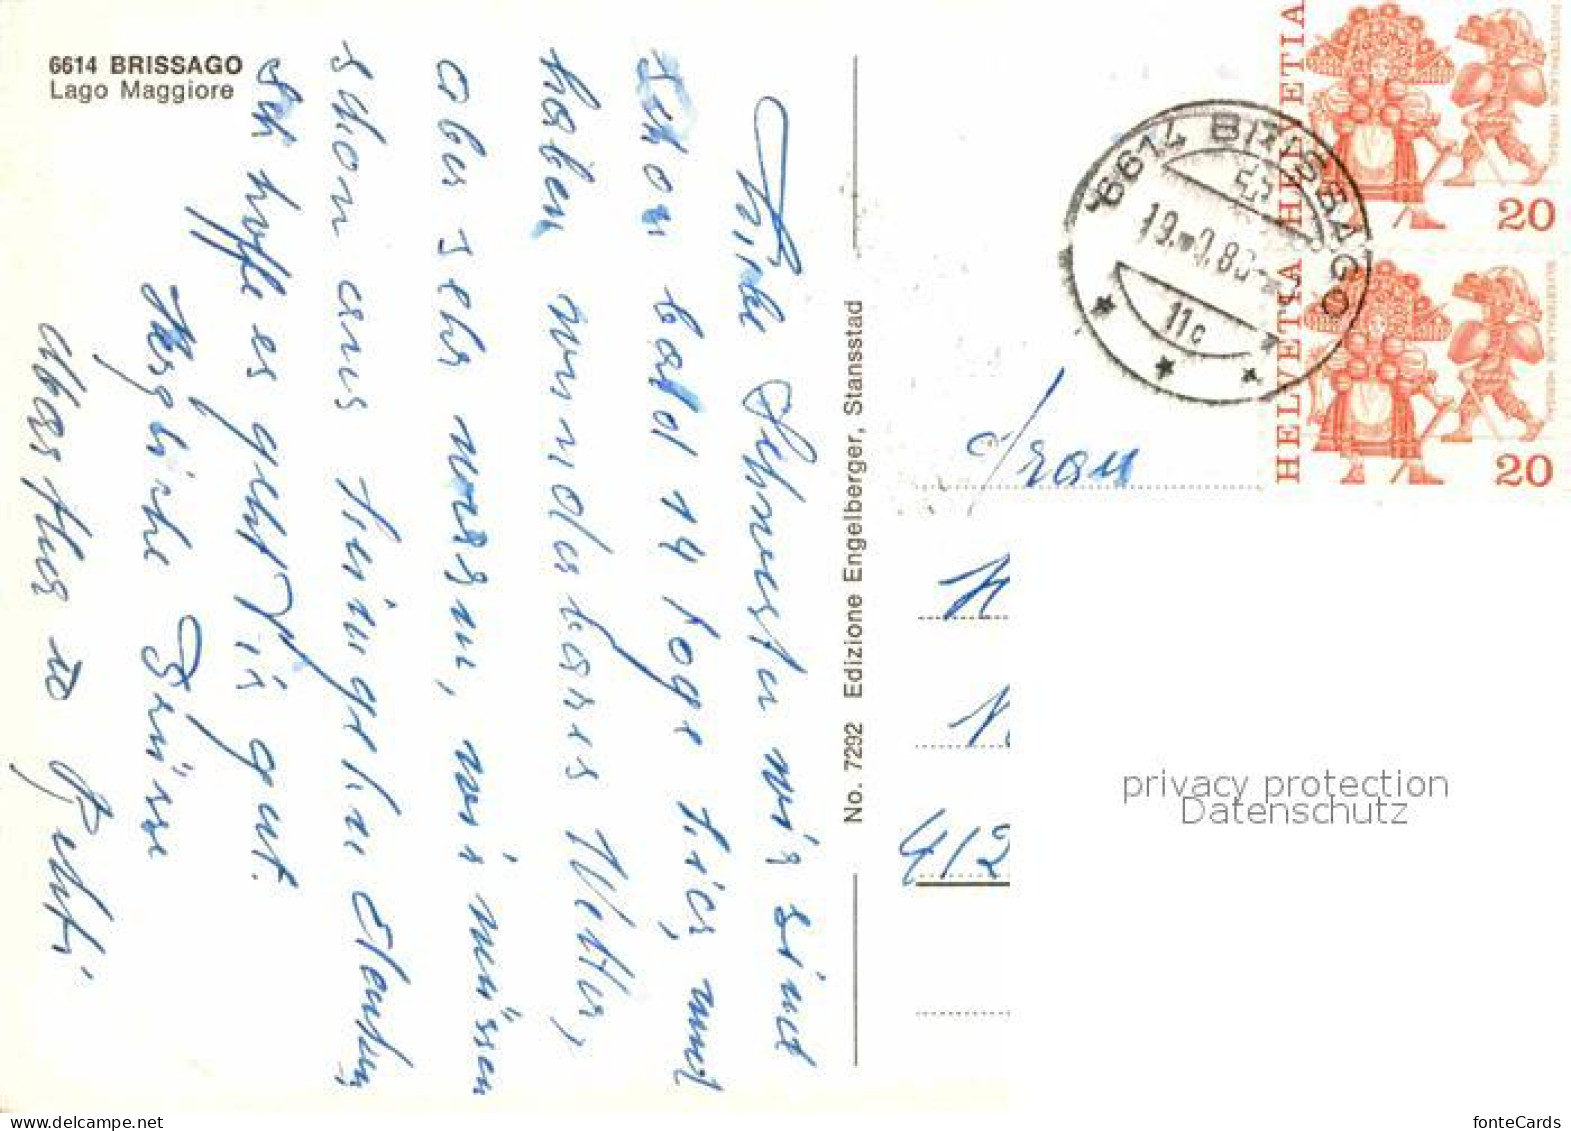 6614 BRISSAGO
Lago Maggiore
Liebe Schwester wir sind
schon bald 14 Tage hier, und
haben wunderbares Wetter,
aber sehr warm, wir müssen
schon ans heimgehen denken,
Ich hoffe es geht Dir gut.
Herzliche Grüsse
Walther u
No. 7292 Edizione Engelberger, Stansstad
HELVETIA
20
HELVETIA
20
6614 BRISSAGO
11c
Frau
412
privacy protection
Datenschutz
fonteCards